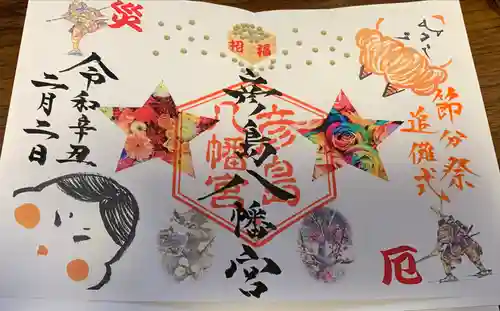 節分祭
追儺式
招福
彦島八幡宮
彦島
八幡宮
令和辛丑
二月二日
災
厄